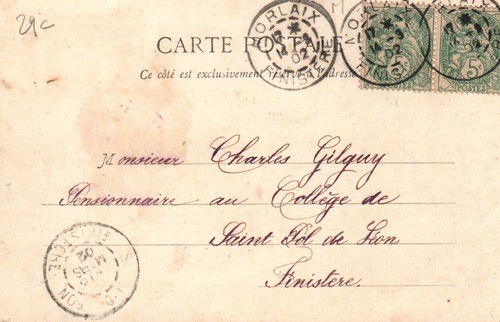 29c
CARTE POSTALE
Ce côté est exclusivement réservé à l'adresse
MORLAIX
FINISTÈRE
MORLAIX
FINIS
5c
POSTES
Monsieur Charles Gilguy
Pensionnaire au Collège de
Saint Pol de Léon
Finistère.